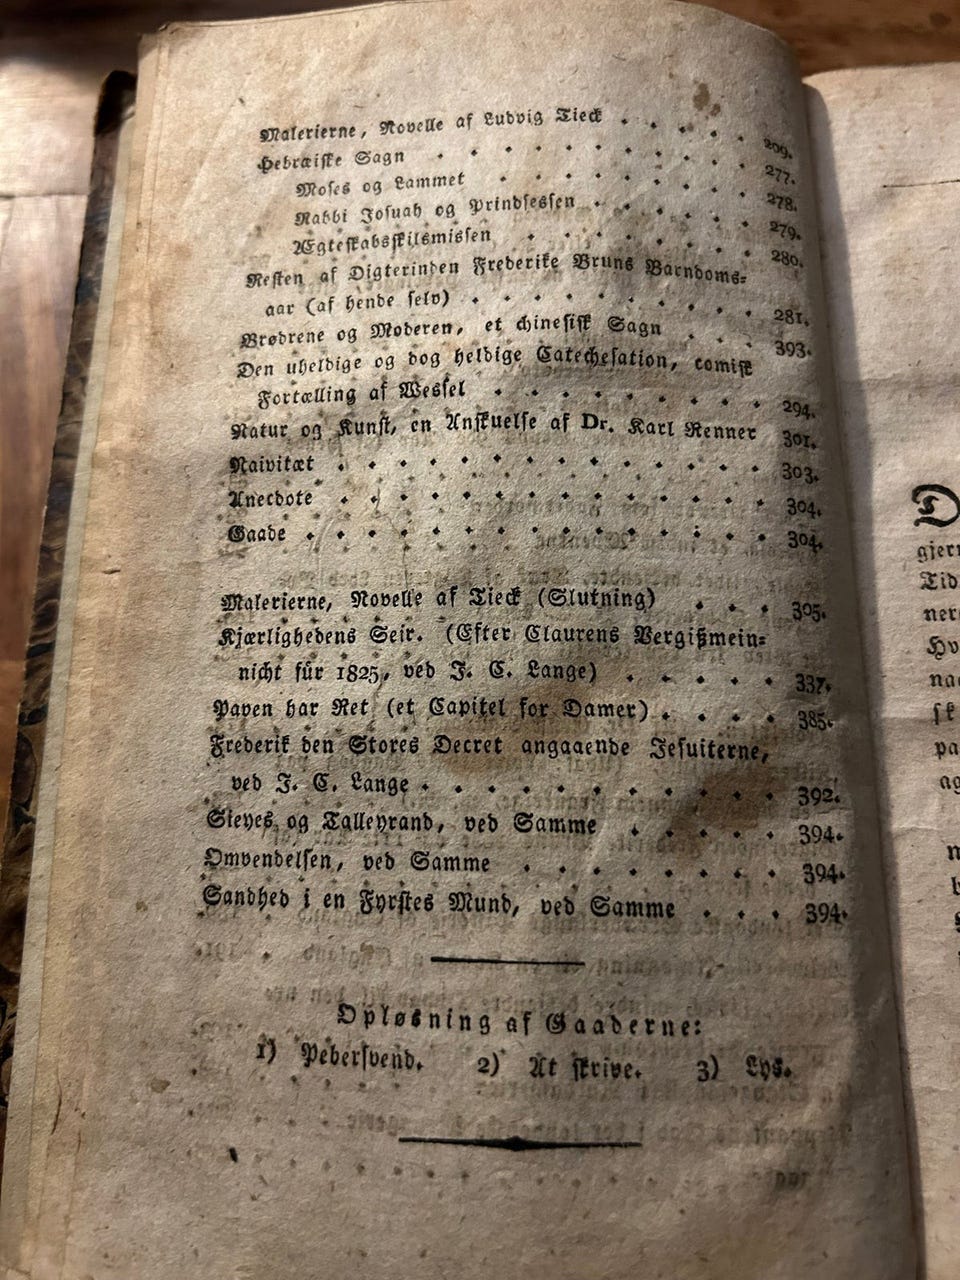 Malerierne, Novelle af Ludvig Tieck . . . . 209.
Hebræiske Sagn . . . . . . . . . 277.
Moses og Lammet . . . . . . . 278.
Rabbi Josuah og Prindsessen . . . . . 279.
Ægteskabsskilsmissen . . . . . . 280.
Resten af Digterinden Frederike Bruns Barndoms-
aar (af hende selv) . . . . . . . . 281.
Brødrene og Moderen, et chinesisk Sagn . . . 393.
Den uheldige og dog heldige Catechesation, comisk
Fortælling af Wessel . . . . . . . . 294.
Natur og Kunst, en Anskuelse af Dr. Karl Renner 301.
Naivitæt . . . . . . . . . . . . 303.
Anecdote . . . . . . . . . . . . 304.
Gaade . . . . . . . . . . . . . 304.
Malerierne, Novelle af Tieck (Slutning) . . . 305.
Kjærlighedens Seir. (Efter Claurens Vergißmein-
nicht für 1825, ved J. C. Lange) . . . . . 337.
Paven har Ret (et Capitel for Damer) . . . . 385.
Frederik den Stores Decret angaaende Jesuiterne,
ved J. C. Lange . . . . . . . . . . 392.
Sieyes og Talleyrand, ved Samme . . . . . 394.
Omvendelsen, ved Samme . . . . . . . 394.
Sandhed i en Fyrstes Mund, ved Samme . . . 394.
Opløsning af Gaaderne:
1) Pebersvend. 2) At skrive. 3) Lys.
D
gjern
Tid
ner
Hv
na
sk
pa
ag